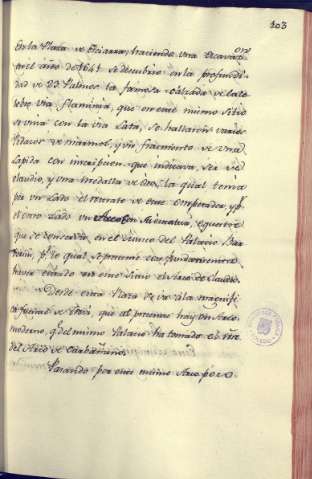 103
En la Plaza de Sciarra, haciendo una excavazon
en el año de 1641 se descubrio en la profundi
dad de 23 Palmos la famosa calzada de la ce
lebre Via Flaminia, que en este mismo sitio
se unia con la via Lata, se hallaron varios
Pedazos de marmol, y un fragmento de una
Lapida con inscripcion que indicava, ser de
Claudio, y una medalla de oro, la qual tenia
por un lado el retrato de este emperador, y p.r
el otro lado un Arco con su estatua, equestre
que se
en el del Palacio Bar
p.r lo qual se presume con fundamento
haver estado en este sitio el Arco de Claudio.
Desde esta Plaza se va a la magnifi
ca fuente de Trevi, que al presente hay un Arco
moderno, q.e del mismo Palacio ha tomado el n.re
del Arco de
Pasando por este mismo Arco poco